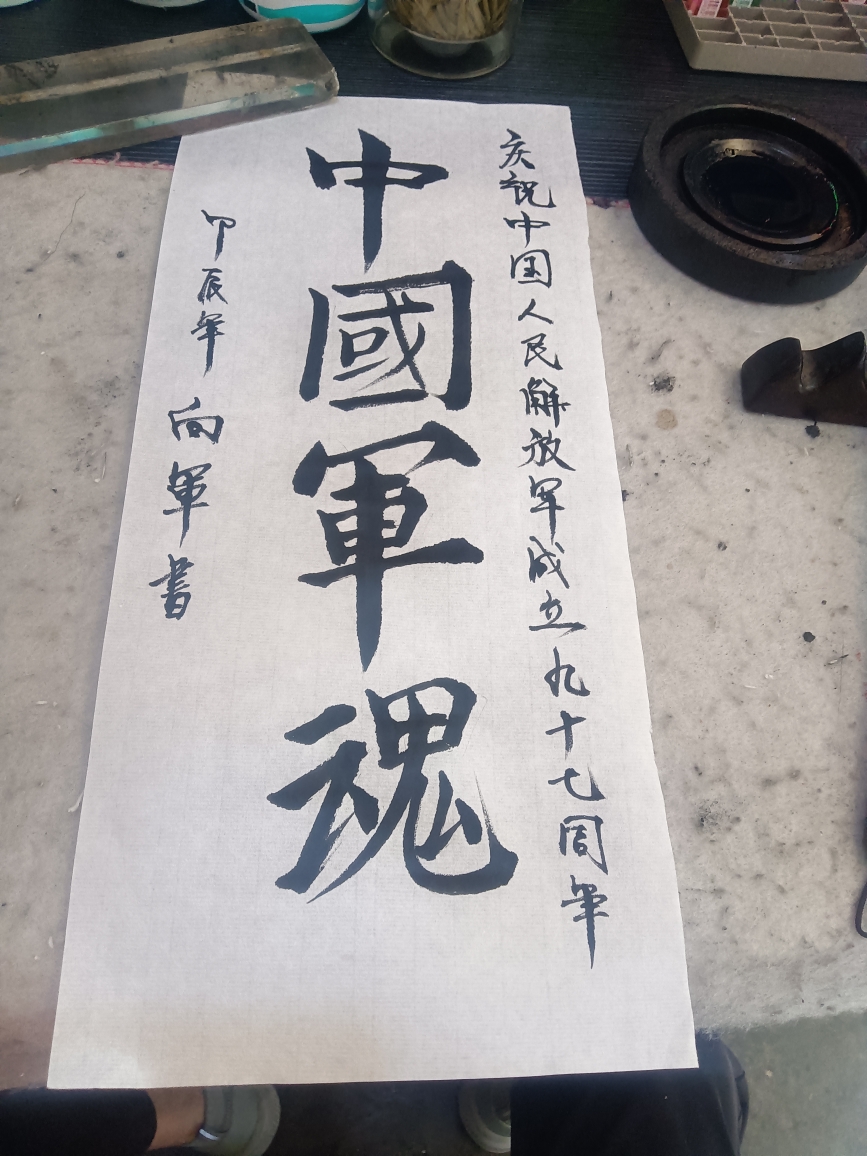 庆祝中国人民解放军成立九十七周年
中國軍魂
甲辰年 向軍書